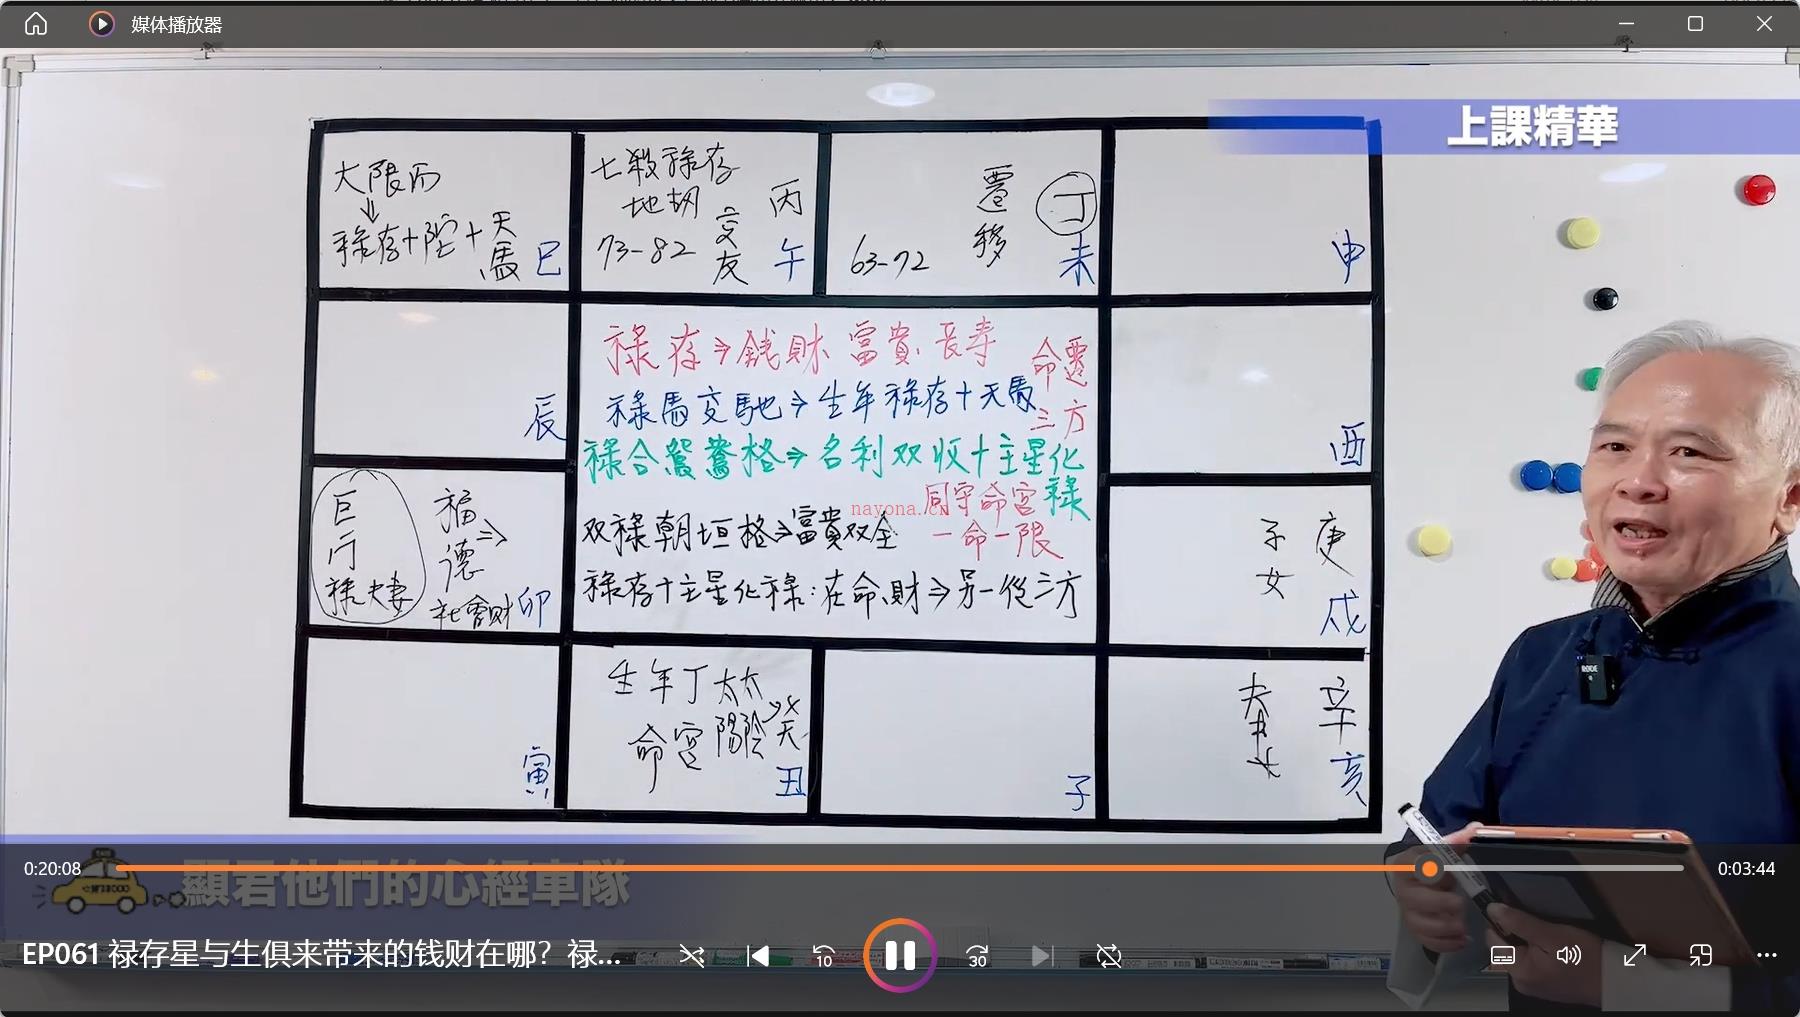 媒体播放器
上課精華
大限丙
⇓
祿存+陀+天馬
巳
七殺祿存
地劫
73-82
交友
丙
午
63-72
遷移
丁
未
申
祿存⇒錢財 富貴 長壽
命遷
三方
祿馬交馳⇒生年祿存+天馬
祿合鴛鴦格⇒名利双收+主星化祿
同守命宮
双祿朝垣格⇒富貴双全
一命一限
祿存+主星化祿:在命、財⇒另一從三方
nayona.cn
辰
酉
巨門
祿夫妻
福德⇒
社會財
卯
子女
庚
戌
寅
生年丁太太
命宮 陽陰
癸
天
丑
子
夫妻
辛
亥
RODE
0:20:08
0:03:44
顯君他們的心經車隊
EP061 禄存星与生俱来带来的钱财在哪？禄...
10
30